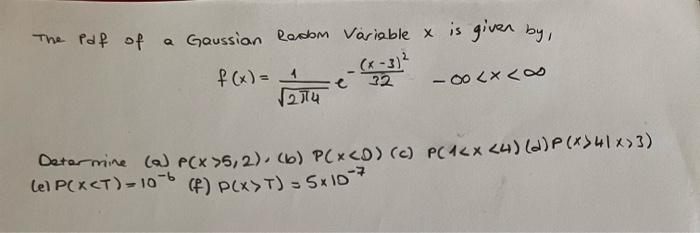 The Pdf of a Gaussian Random Variable x is given by,
f(x) = 1/√2π4 e^-(x-3)²/32 -∞<x<∞
Determine (a) P(x>5,2), (b) P(x<0) (c) P(1<x<4) (d) P(x>4|x>3)
(e) P(x<T)=10^-6 (f) P(x>T)=5x10^-7